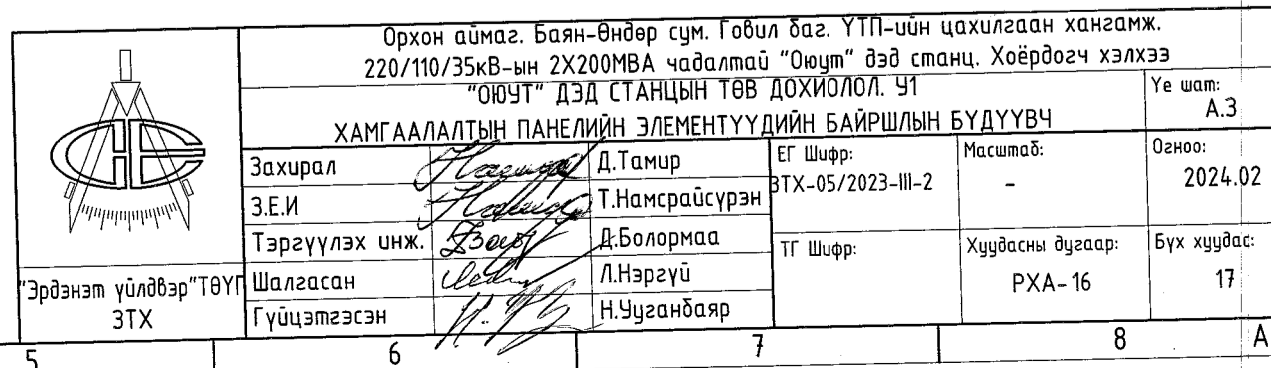 Орхон аймаг. Баян-Өндөр сум. Говил баг. ҮТП-ийн цахилгаан хангамж.
220/110/35кВ-ын 2Х200МВА чадалтай "Оюут" дэд станц. Хоёрдогч хэлхээ
"ОЮУТ" ДЭД СТАНЦЫН ТӨВ ДОХИОЛОЛ. У1
ХАМГААЛАЛТЫН ПАНЕЛИЙН ЭЛЕМЕНТҮҮДИЙН БАЙРШЛЫН БҮДҮҮВЧ
Үе шат:
А.З
Захирал
Д.Тамир
З.Е.И
Т.Намсрайсүрэн
Тэргүүлэх инж.
Д.Болормаа
Шалгасан
Л.Нэргүй
Гүйцэтгэсэн
Н.Ууганбаяр
ЕГ Шифр:
ЗТХ-05/2023-III-2
Масштаб:
-
Огноо:
2024.02
ТГ Шифр:
Хуудасны дугаар:
РХА-16
Бүх хуудас:
17
"Эрдэнэт үйлдвэр"ТӨҮГ
ЗТХ
5 6 7 8 А